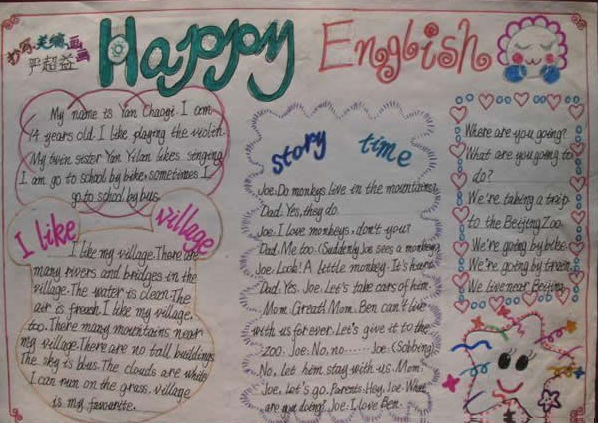 Happy English
书写、美编、画画
严超益
My name is Yan Chaogi. I am
14 years old. I like playing the violin.
My twin sister Yan Yilan likes singing
I am go to school by bike, sometimes I
go to school by bus.
I like village
I like my village. There are
many rivers and bridges in the
village. The water is clean. The
air is freash. I like my village,
too. There many mountains near
my village. There are no tall buildings
The sky is blue. The clouds are white
I can run on the grass. village
is my favourite.
story time
Joe: Do monkeys live in the mountains?
Dad: Yes, they do.
Joe: I love monkeys, don't you?
Dad: Me too. (Suddenly Joe sees a monkey)
Joe: Look! A little monkey. It's hurt.
Dad: Yes. Joe: Let's take cars of him.
Mom: Great! Mom: Ben can't live
with us for ever. Let's give it to the
zoo. Joe: No, no...... Joe: (Sobbing)
No, let him stay with us. Mom:
Joe, Let's go. Parents: Hey, Joe. What
are you doing? Joe: I love Ben.
Where are you going?
What are you going to
do?
We're taking a trip
to the Beijing Zoo.
We're going by bike.
We're going by train.
We live near Beijing